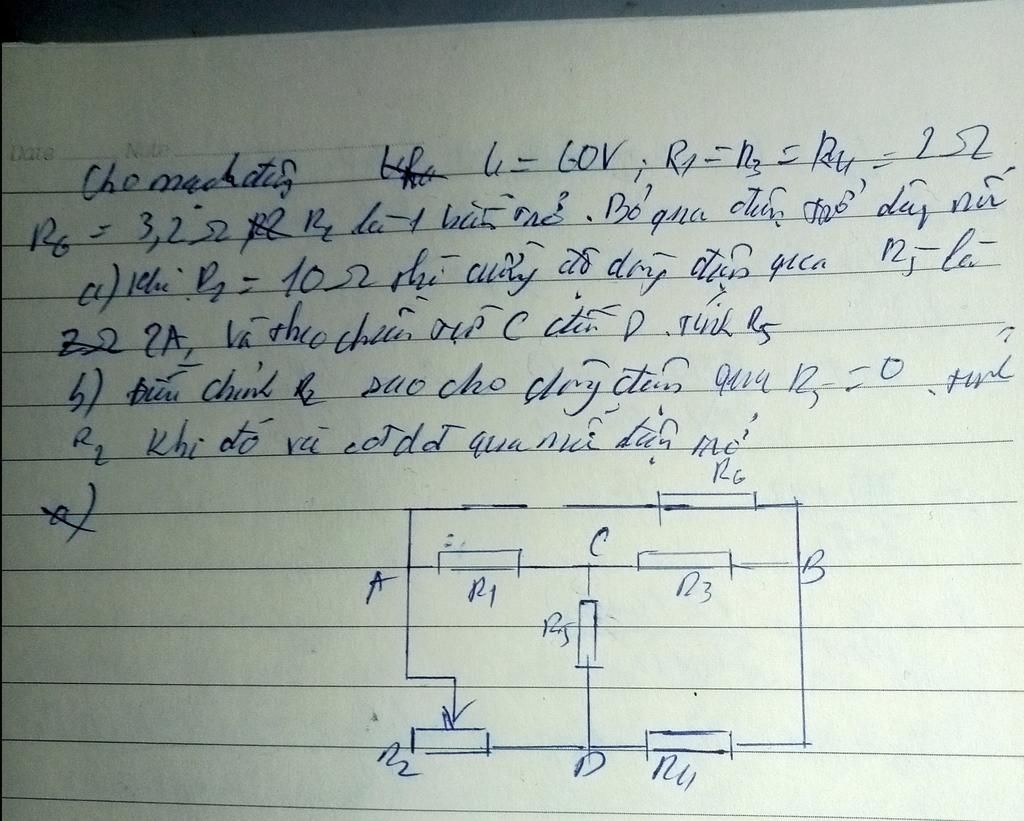 Date Note
Cho mạch điện U = 60V; R1 = R3 = R4 = 2Ω
R6 = 3,2Ω R2 là 1 biến trở. Bỏ qua điện trở dây nối
a) Khi R2 = 10Ω thì cường độ dòng điện qua R5 là
2A, và theo chiều từ C đến D. tính R5
b) Điều chỉnh R2 sao cho dòng điện qua R5 = 0. tính
R2 khi đó và qua mỗi điện trở
a)
R6
C
A R1 R3 B
R5
R2 D R4